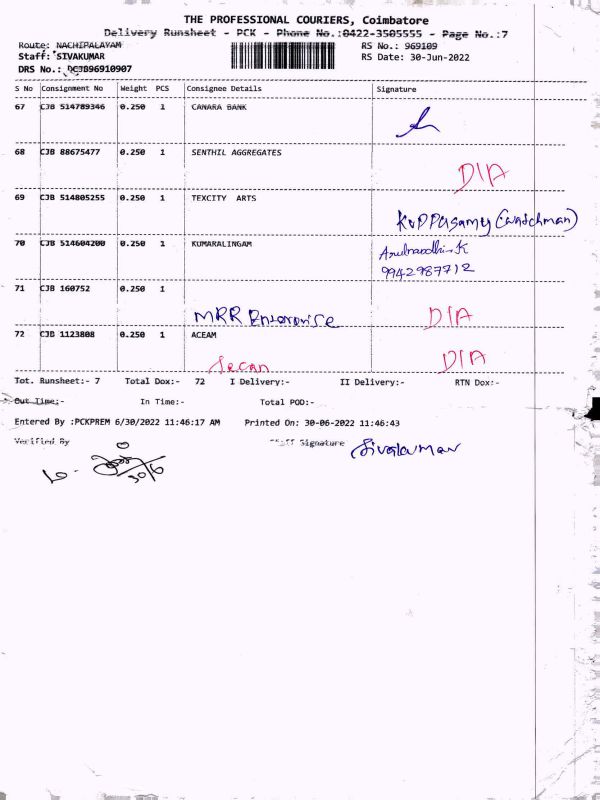 THE PROFESSIONAL COURIERS, Coimbatore
Delivery Runsheet - PCK - Phone No.:0422-3505555 - Page No.:7
Route: NACHIPALAYAM RS No.: 969109
Staff: SIVAKUMAR RS Date: 30-Jun-2022
DRS No.: PCJB96910907
S No Consignment No Weight PCS Consignee Details Signature
67 CJB 514789346 0.250 1 CANARA BANK
68 CJB 88675477 0.250 1 SENTHIL AGGREGATES
D/A
69 CJB 514805255 0.250 1 TEXCITY ARTS
KuppUsamy (watchman)
70 CJB 514604200 0.250 1 KUMARALINGAM
9942987712
71 CJB 160752 0.250 1
MRR Enterprise D/A
72 CJB 1123808 0.250 1 ACEAM
D/A
Tot. Runsheet:- 7 Total Dox:- 72 I Delivery:- II Delivery:- RTN Dox:-
Out Time:- In Time:- Total POD:-
Entered By :PCKPREM 6/30/2022 11:46:17 AM Printed On: 30-06-2022 11:46:43
Verified By Staff Signature Sivakumar
30/6